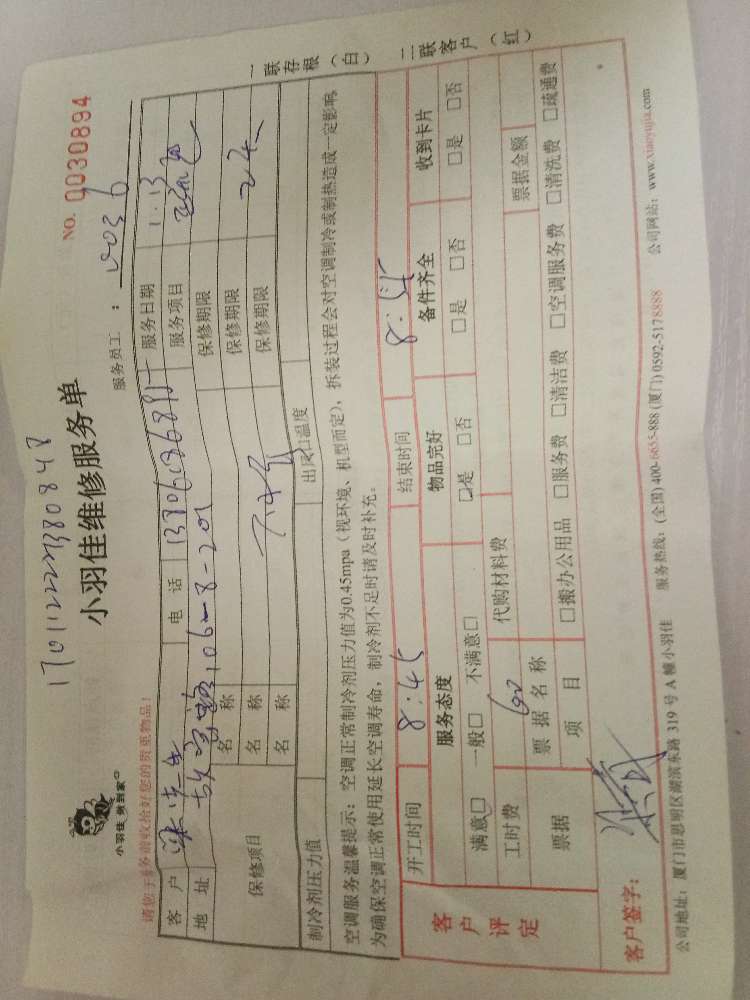 17011222380848
NO. 0030894
小羽佳 做到家
小羽佳维修服务单
服务员工：
请您于服务前收拾好您的贵重物品！
客户 电话 服务日期 1.13
地址 106-8-201 服务项目
保修项目 名称 保修期限
名称 保修期限
名称 保修期限
制冷剂压力值 出风口温度
空调服务温馨提示：空调正常制冷剂压力值为0.45mpa（视环境、机型而定），拆装过程会对空调制冷或制热造成一定影响，
为确保空调正常使用延长空调寿命，制冷剂不足时请及时补充。
一联存根（白） 二联客户（红）
开工时间 8:45 结束时间 8:55
客户评定
服务态度 物品完好 备件齐全 收到卡片
满意□ 一般□ 不满意□ □是 □否 □是 □否 □是 □否
工时费 60 代购材料费
票据 票据名称 票据金额
项目 □搬办公用品 □服务费 □清洁费 □空调服务费 □清洗费 □疏通费
客户签字：
公司地址：厦门市思明区湖滨东路319号A幢小羽佳 服务热线：(全国)400-6655-888 (厦门)0592-5178888 公司网站：www.xiaoyujia.com